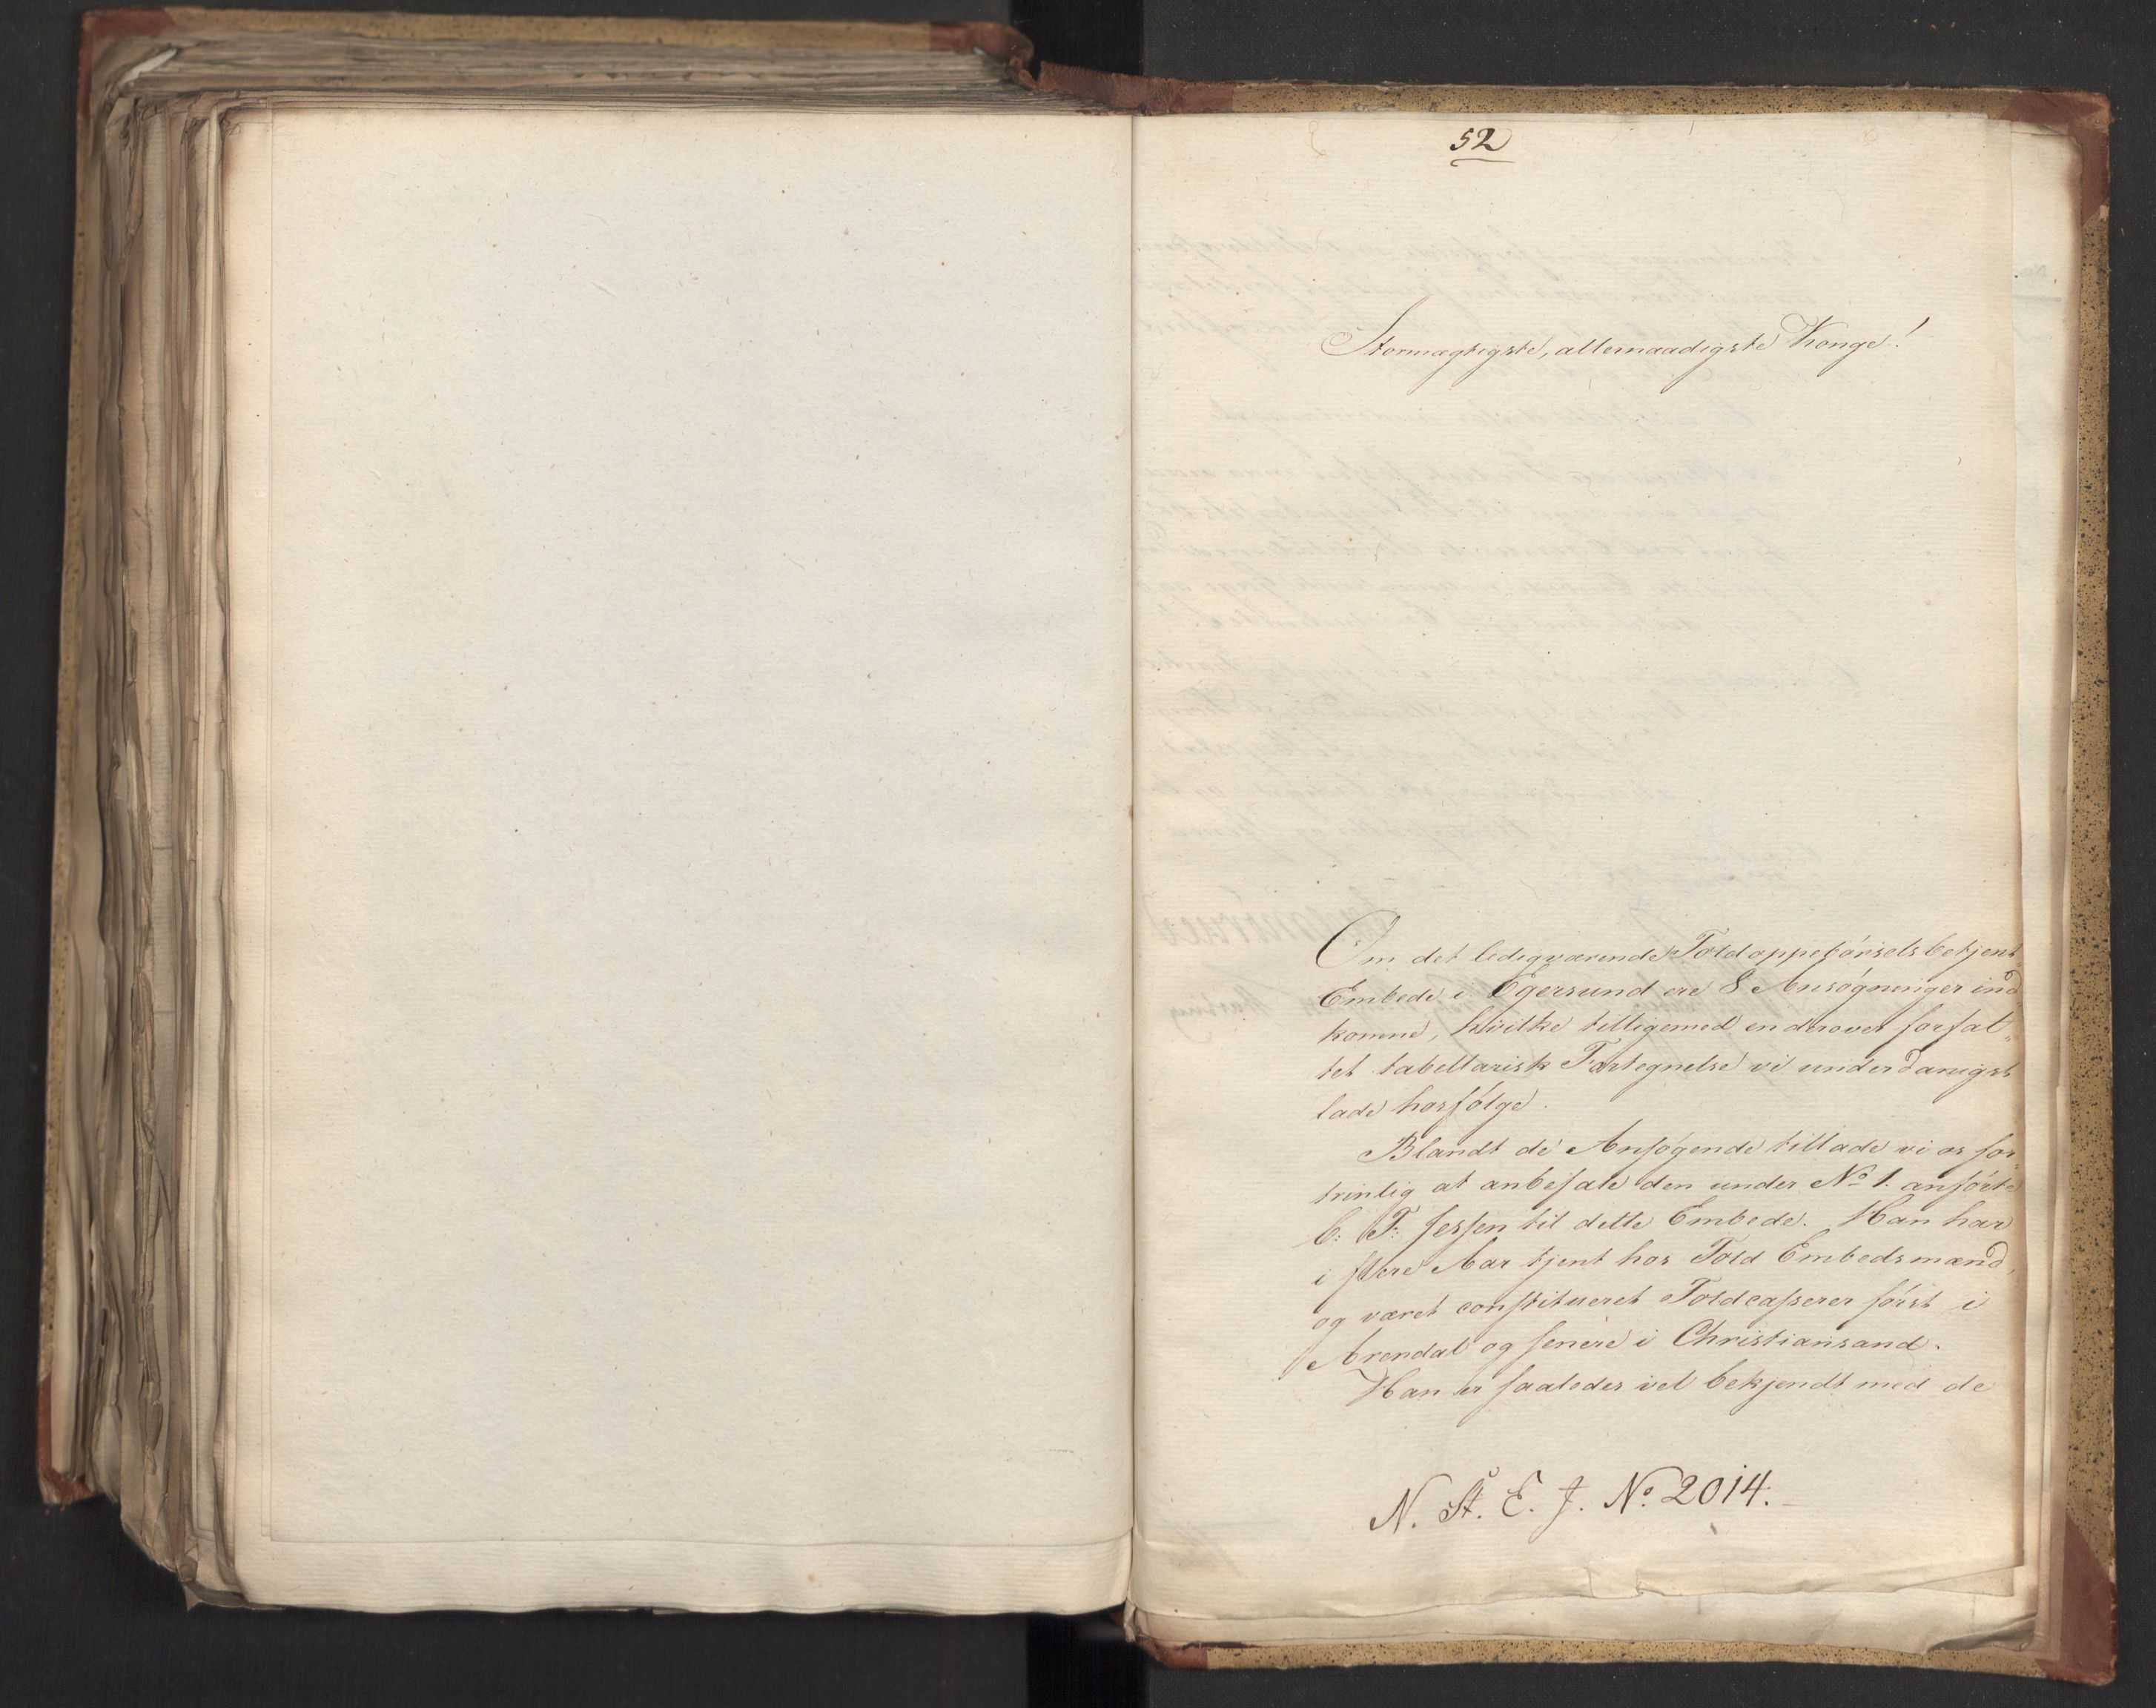 52
Stormægtigste, allernaadigste Konge!
Om det ledigværende Toldoppebørselsbetjent
Embede i Egersund ere 8 Ansøgninger ind
komne, hvilke tilligemed en derover forfat„
tet tabellarisk Fortegnelse vi underdanigst
lade hosfølge.
Blandt de Ansøgende tillade vi os for„
trinlig at anbefale den under No 1. anførte
C: F: Jessen til dette Embede. Han har
i flere Aar tjent hos Told Embedsmænd,
og været constitueret Toldcasserer først i
Arendal og senere i Christiansand.
Han er saaledes vel bekjendt med de
N. St. E. J. No. 2014.